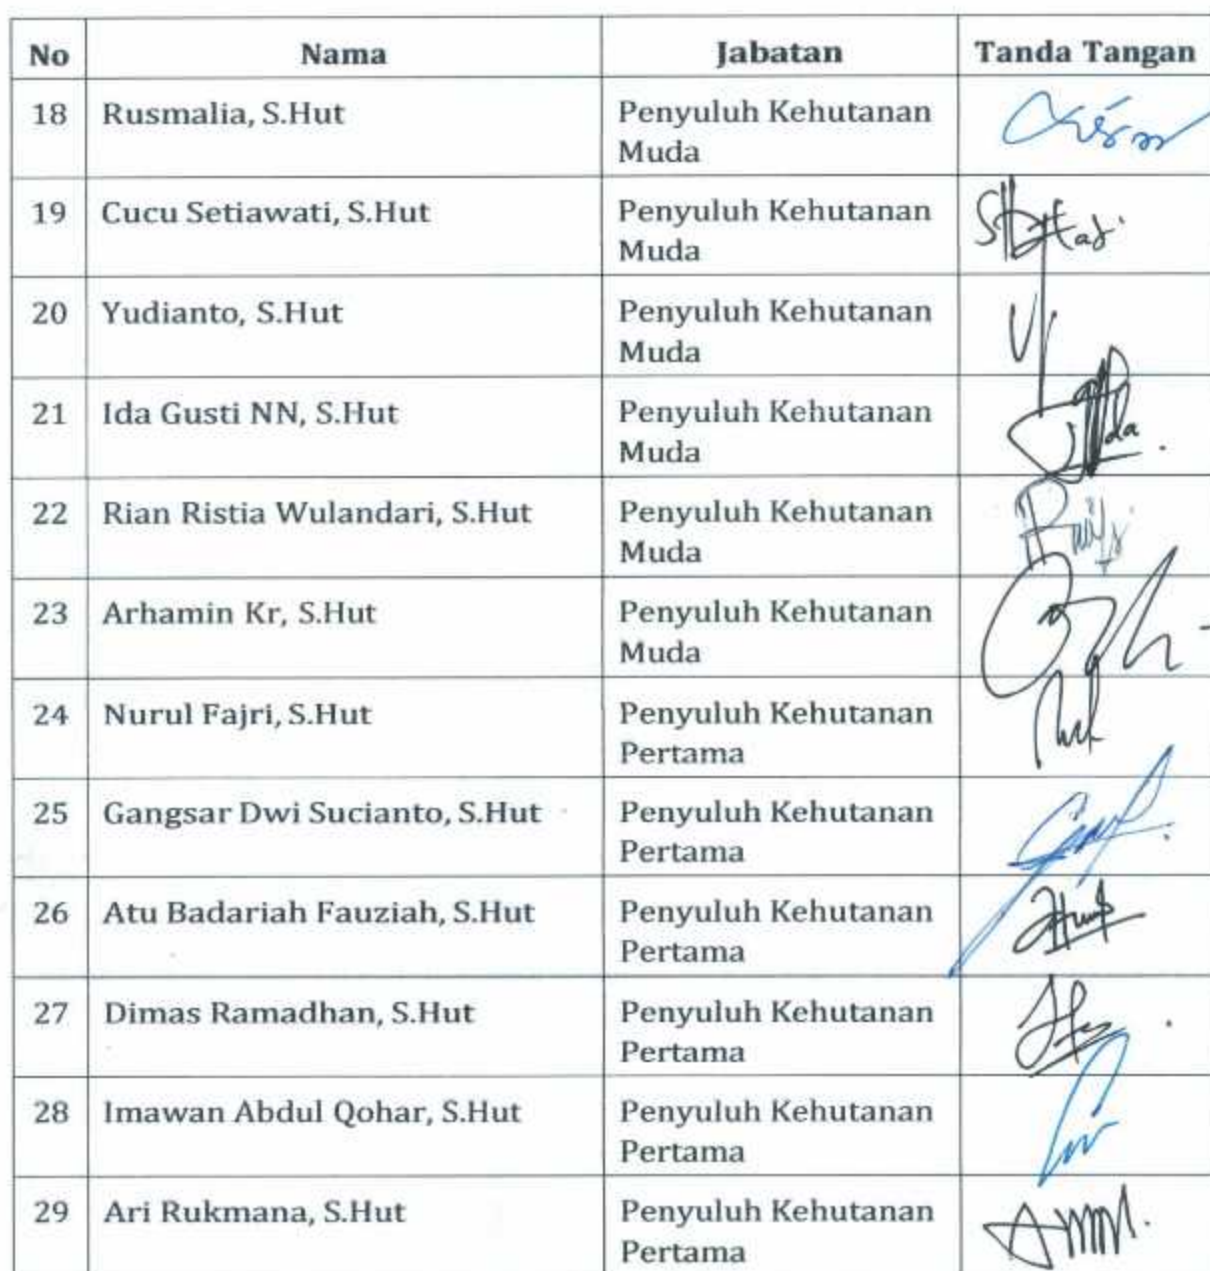 No Nama Jabatan Tanda Tangan
18 Rusmalia, S.Hut Penyuluh Kehutanan
Muda
19 Cucu Setiawati, S.Hut Penyuluh Kehutanan
Muda
20 Yudianto, S.Hut Penyuluh Kehutanan
Muda
21 Ida Gusti NN, S.Hut Penyuluh Kehutanan
Muda
22 Rian Ristia Wulandari, S.Hut Penyuluh Kehutanan
Muda
23 Arhamin Kr, S.Hut Penyuluh Kehutanan
Muda
24 Nurul Fajri, S.Hut Penyuluh Kehutanan
Pertama
25 Gangsar Dwi Sucianto, S.Hut Penyuluh Kehutanan
Pertama
26 Atu Badariah Fauziah, S.Hut Penyuluh Kehutanan
Pertama
27 Dimas Ramadhan, S.Hut Penyuluh Kehutanan
Pertama
28 Imawan Abdul Qohar, S.Hut Penyuluh Kehutanan
Pertama
29 Ari Rukmana, S.Hut Penyuluh Kehutanan
Pertama